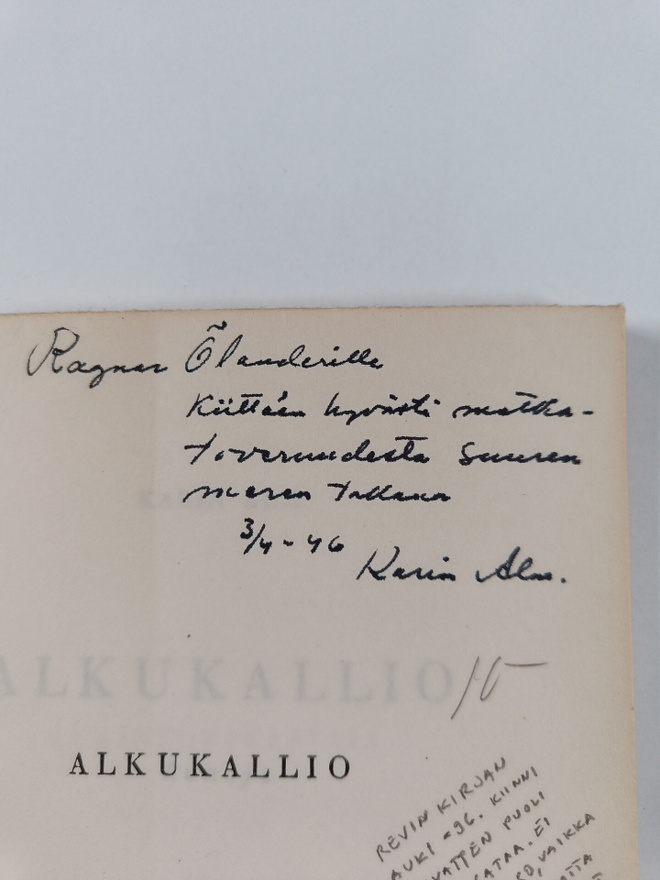 Ragnar Ölanderille
Kiittäen hyvästä matka-
toveruudesta Suuren
meren takana
3/4 - 46
Karin Alm.
ALKUKALLIO
15
ALKUKALLIO
REVIN KIRJAN
AUKI -96. KIINNI
VATTEN PUOLI
SATAA. EI
VAIKKA